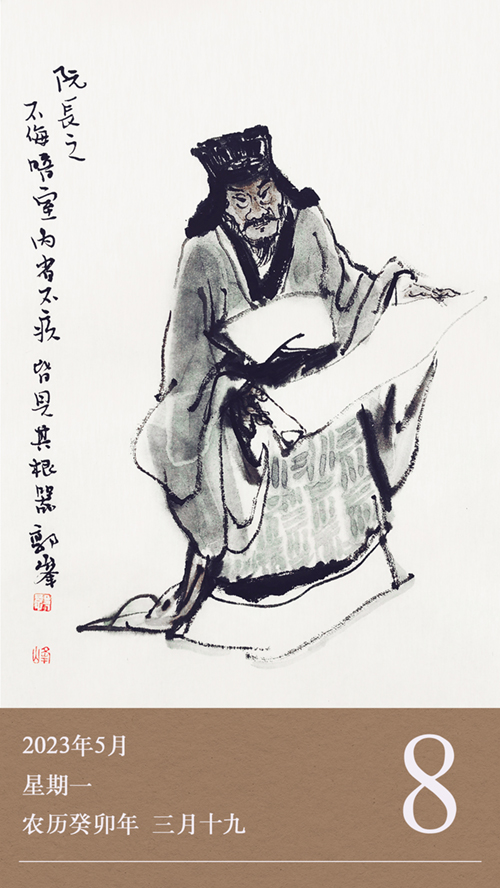 阮長之
不侮暗室内省不疚皆具其根器 郭峯
2023年5月
星期一
农历癸卯年 三月十九
8